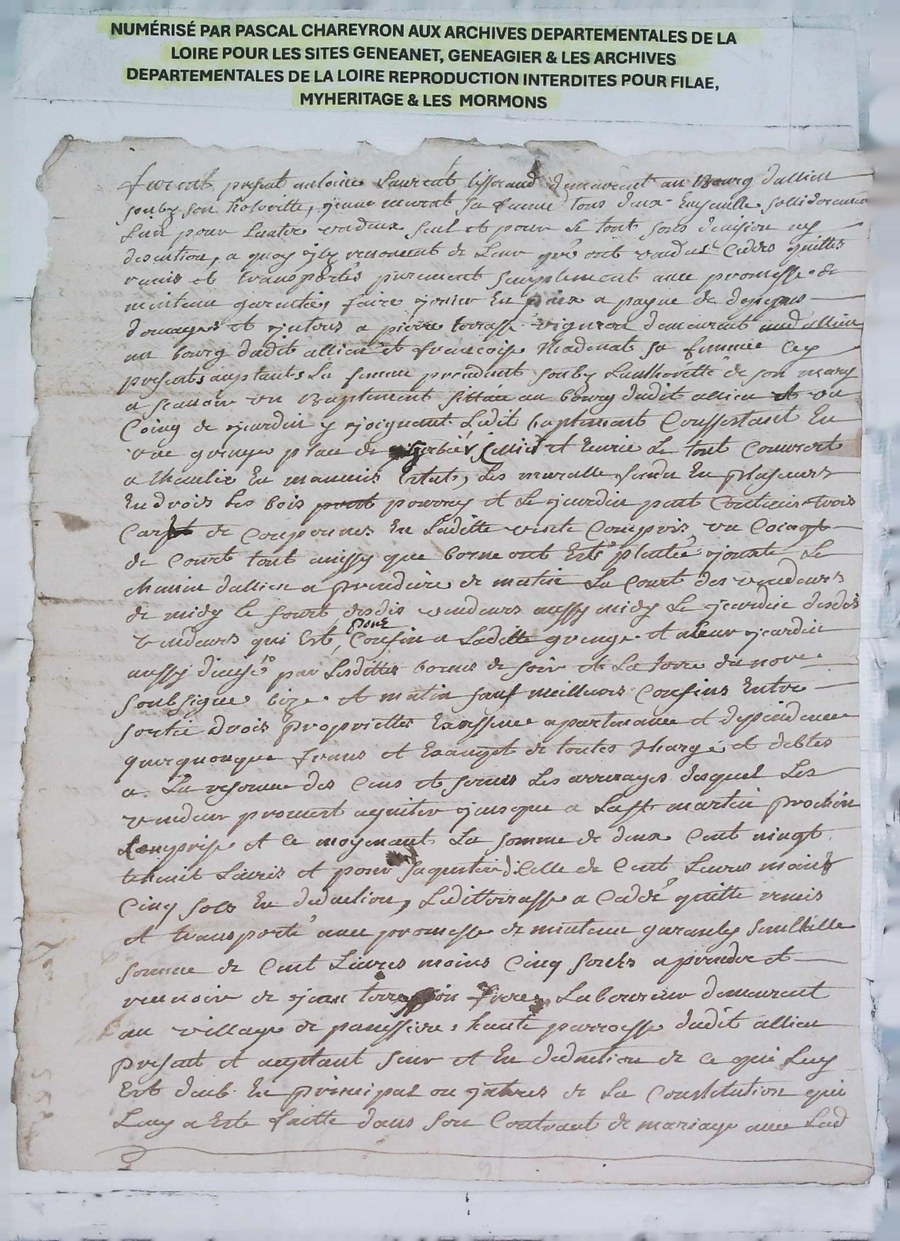 NUMÉRISÉ PAR PASCAL CHAREYRON AUX ARCHIVES DEPARTEMENTALES DE LA
LOIRE POUR LES SITES GENEANET, GENEAGIER & LES ARCHIVES
DEPARTEMENTALES DE LA LOIRE REPRODUCTION INTERDITES POUR FILAE,
MYHERITAGE & LES MORMONS
furent presat antoine Laurent demeurant au Bourg dallieu
murat sa femme tous deux Ensemble sollideremen
Lun pour Lautre vandeur seul et pour le tout sans devision ny
discution, a quoy ils renoncent de Leur gré ont vandus Cedés quittés
remis et transportés purement simplement avec promesse de
maintenu garentie, faire jouir En paix a payne de despens
domages et interes a pierre terrasse vigneron demeurant
au bourg dudit allieu et francoise Madenat sa femme icy
presents aceptants La femme procedant soubz Lauthorité de son mary
a scavoir un Baptiment sittué au bourg dudit allieu et un
Coing de jardin y joignant Ledit baptiment Conssestant En
une grange plan de Cellier et Ecurie Le tout Couvert
a thuille En mauvais Estat, Les muralle fendu En plusieurs
Endrois Les bois pourris et Le jardin peut Contenir trois
de Couponnes En Laditte vente Compris un
de Court tout aussy que borne ont Esté planté joute Le
chemin dallieu a prendre de matin La Court des vendeurs
de midy le fourt desdis vendeurs aussy midy Le jeardin desdis
vendeurs qui Est pour Confin a Laditte grange et a Leur jeardin
aussy divisé par Lesdittes bornes de soir et La terre du no.re
soubsigne bize et matin sauf meilleurs Confins Entre
sortie drois proprietter apartenance et dependence
quequonque frans et Exampt de toutes Charge et debtes
a La reserve des Cens et servis Les arrerages desquel Les
vendeur promet aquiter jusque a La St martin prochin
Compris et ce moyenant La somme de deux Cent vingt
thuit Livres et pour paquitter dicelle de Cent Livres moins
Cinq sols En deduction, Ledit terrasse a Cedé quitté remis
et transporté avec promesse de maintenu garantie semblable
somme de Cent Livres moins Cinq sols a prendre et
recevoir de jean Laboureur demeurant
au village de panissiere, haute parroisse dudit allieu
present et aceptant sur et En deduction de ce qui Luy
Est deub En principal ou interes de La Constitution qui
Luy a Esté faitte dans son Contrant de mariage avec Lad